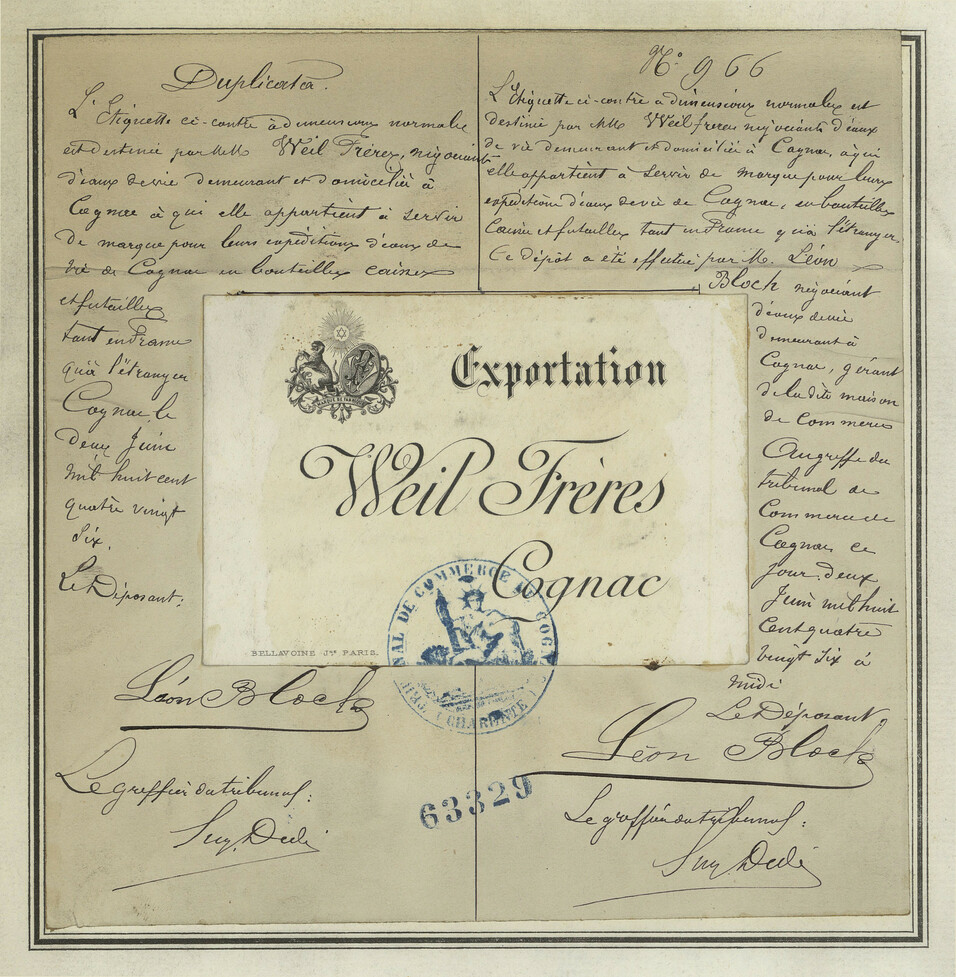 Duplicata.
L'Etiquette ci-contre à dimensions normales
est destinée par MM Weil Frères, négociants
d'eaux de vie demeurant et domiciliés à
Cognac à qui elle appartient à servir
de marque pour leurs expéditions d'eaux de
vie de Cognac en bouteilles caisses
et futailles
tant en France
qu'à l'étranger
Cognac, le
deux Juin
mil huit cent
quatre vingt
six.
Le Déposant:
Léon Bloch
Le greffier du tribunal:
N° 966
L'Etiquette ci-contre à dimensions normales est
destinée par MM Weil frères négociants d'eaux
de vie demeurant et domiciliés à Cognac, à qui
elle appartient à servir de marque pour leurs
expéditions d'eaux de vie de Cognac, en bouteilles
Caisses et futailles tant en France qu'à l'étranger.
Ce dépôt a été effectué par M. Léon
Bloch négociant
d'eaux de vie
demeurant à
Cognac, gérant
de la dite maison
de Commerce
Au greffe du
tribunal de
Commerce de
Cognac ce
jour deux
Juin mil huit
Cent quatre
vingt six à
midi
Le Déposant,
Léon Bloch
Le greffier du tribunal:
MARQUE DE FABRIQUE
Exportation
Weil Frères
Cognac
BELLAVOINE Jne PARIS.
TRIBUNAL DE COMMERCE DE COGNAC
(CHARENTE)
63329